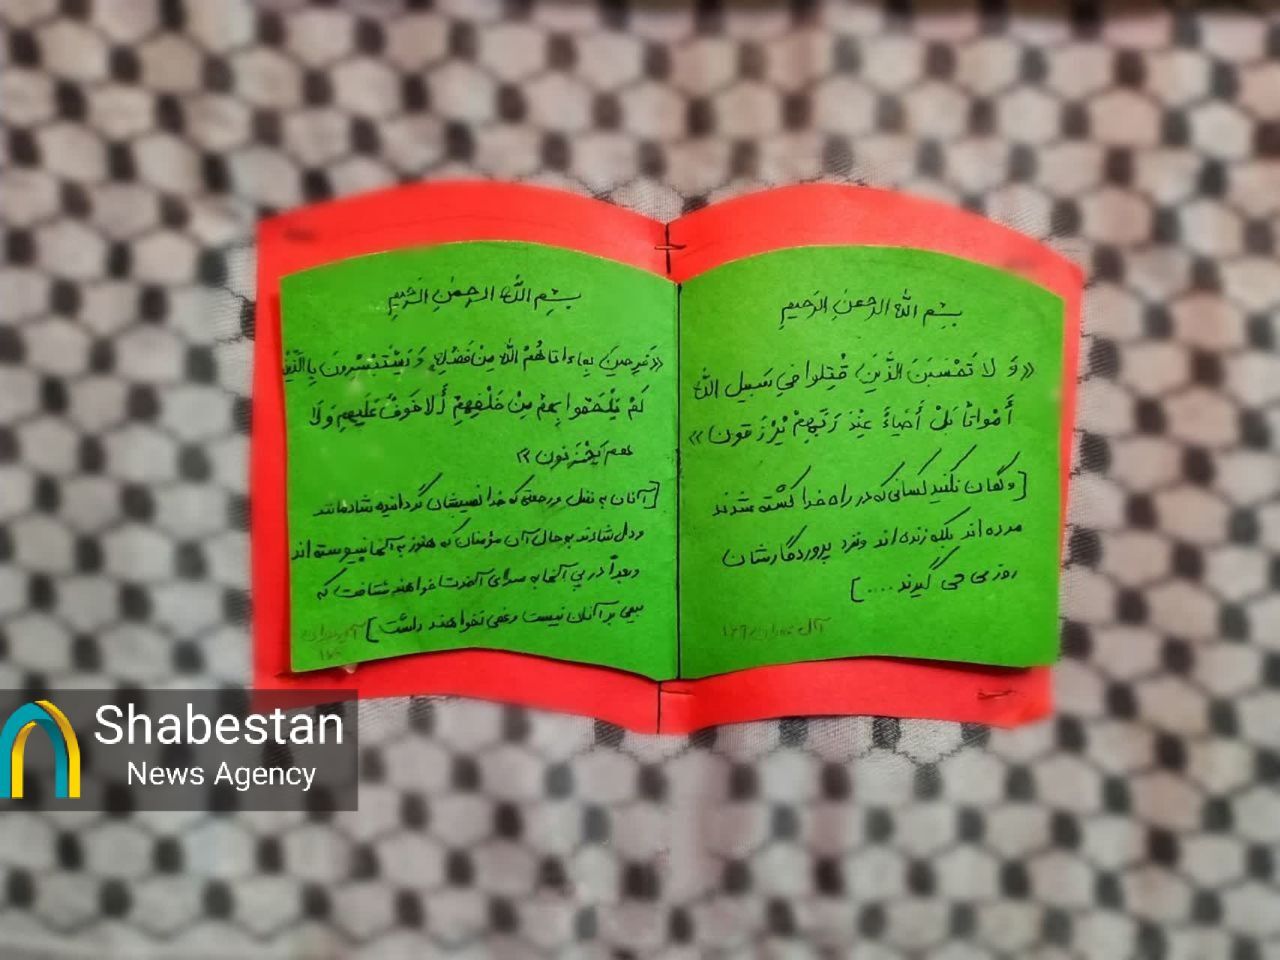 بِسْمِ اللّٰهِ الرَّحمٰنِ الرَّحیمِ
«وَ لَا تَحْسَبَنَ الَّذینَ قُتِلوا فی سَبیل اللّٰه
أَمْواتاً بَلْ أَحْیاءً عِنْدَ رَبِّهِمْ یُرْزَقون»
[و گمان نکنید کسانی که در راه خدا کشته شدند
مرده اند بلکه زنده اند و نزد پروردگارشان
روزی می گیرند ....]
آل عمران ۱۶۹
بِسْمِ اللّٰهِ الرَّحمٰنِ الرَّحیمِ
«فَرِحینَ بِماءاتاهُمُ اللّٰه مِنْ فَضْلِهِ وَ یَسْتَبْشِرونَ بِالَّذینَ
لَمْ یَلْحَقوا بِهِمْ مِنْ خَلْفِهِمْ أَلا خَوفٌ عَلَیهِم وَ لا
هم یَحْزَنون»
[آنان به فضل و رحمتی که خدا نصیبشان گردانیده شادمانند
و دل شادند به حال آن مؤمنان که هنوز به آنها نپیوسته اند
و بعداً در پی آنها به سرای آخرت خواهند شتافت که
بیمی بر آنان نیست و غمی نخواهند داشت]
آل عمران
۱۷۰
Shabestan
News Agency